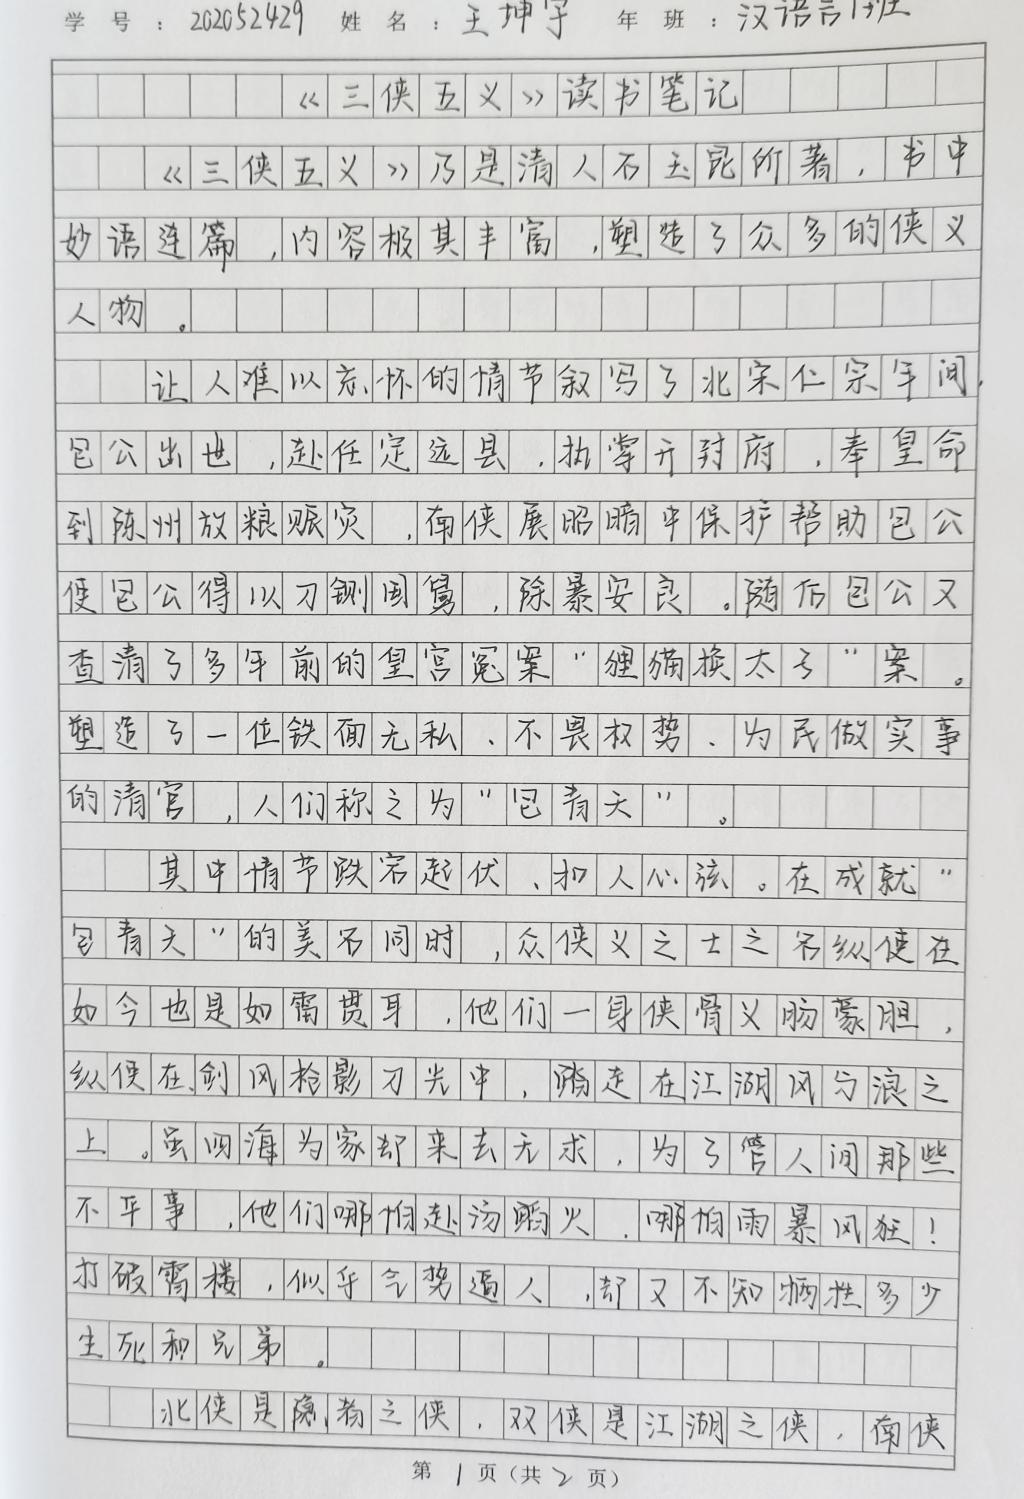 学号：202052429 姓名：王坤宇 年班：汉语言1班
《三侠五义》读书笔记
《三侠五义》乃是清人石玉昆所著，书中
妙语连篇，内容极其丰富，塑造了众多的侠义
人物。
让人难以忘怀的情节叙写了北宋仁宗年间，
包公出世，赴任定远县，执掌开封府，奉皇命
到陈州放粮赈灾，南侠展昭暗中保护帮助包公
使包公得以刀铡国舅，除暴安良。随后包公又
查清了多年前的皇宫冤案"狸猫换太子"案。
塑造了一位铁面无私、不畏权势、为民做实事
的清官，人们称之为"包青天"。
其中情节跌宕起伏、扣人心弦。在成就"
包青天"的美名同时，众侠义之士之名纵使在
如今也是如雷贯耳，他们一身侠骨义肠豪胆，
纵使在剑风枪影刀光中，踏走在江湖风与浪之
上。虽四海为家却来去无求，为了管人间那些
不平事，他们哪怕赴汤蹈火，哪怕雨暴风狂！
打破霄楼，似乎气势逼人，却又不知牺牲多少
生死和兄弟。
北侠是隐者之侠，双侠是江湖之侠，南侠
第1页(共2页)